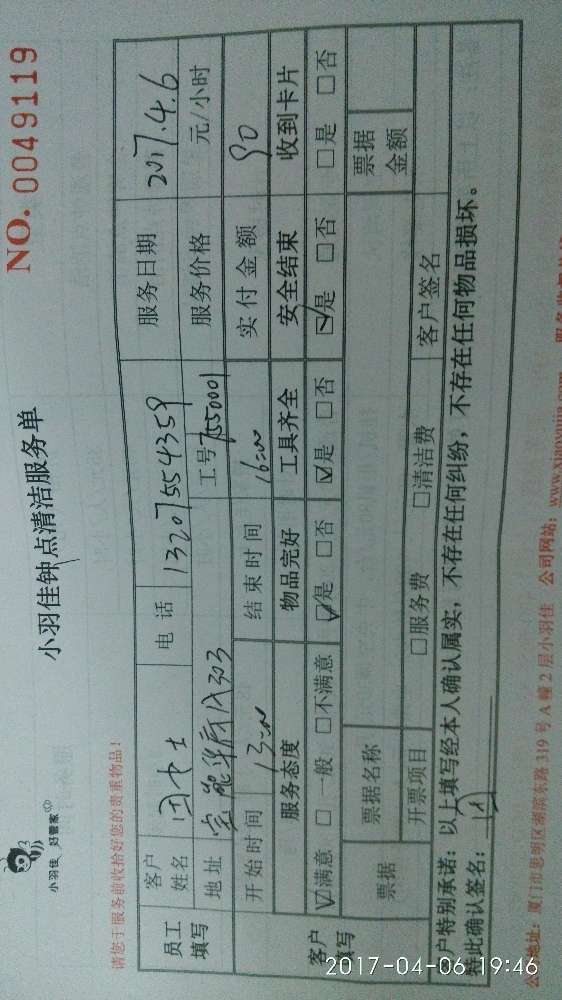 小羽佳 好管家
小羽佳钟点清洁服务单
NO. 0049119
请您于服务前收拾好您的贵重物品!
员工填写 客户姓名 田女士 电话 13207554359 服务日期 2017.4.6
地址 303 工号 服务价格 元/小时
客户填写 开始时间 13:00 结束时间 16:00 实付金额 90
服务态度 物品完好 工具齐全 安全结束 收到卡片
☑满意 □一般 □不满意 ☑是 □否 ☑是 □否 ☑是 □否 □是 □否
票据 票据名称 票据金额
开票项目 □服务费 □清洁费 客户签名
客户特别承诺:以上填写经本人确认属实,不存在任何纠纷,不存在任何物品损坏。
特此确认签名: 田
公司地址:厦门市思明区湖滨东路319号A幢2层小羽佳 公司网站:www.xiaoyujia.com
2017-04-06 19:46